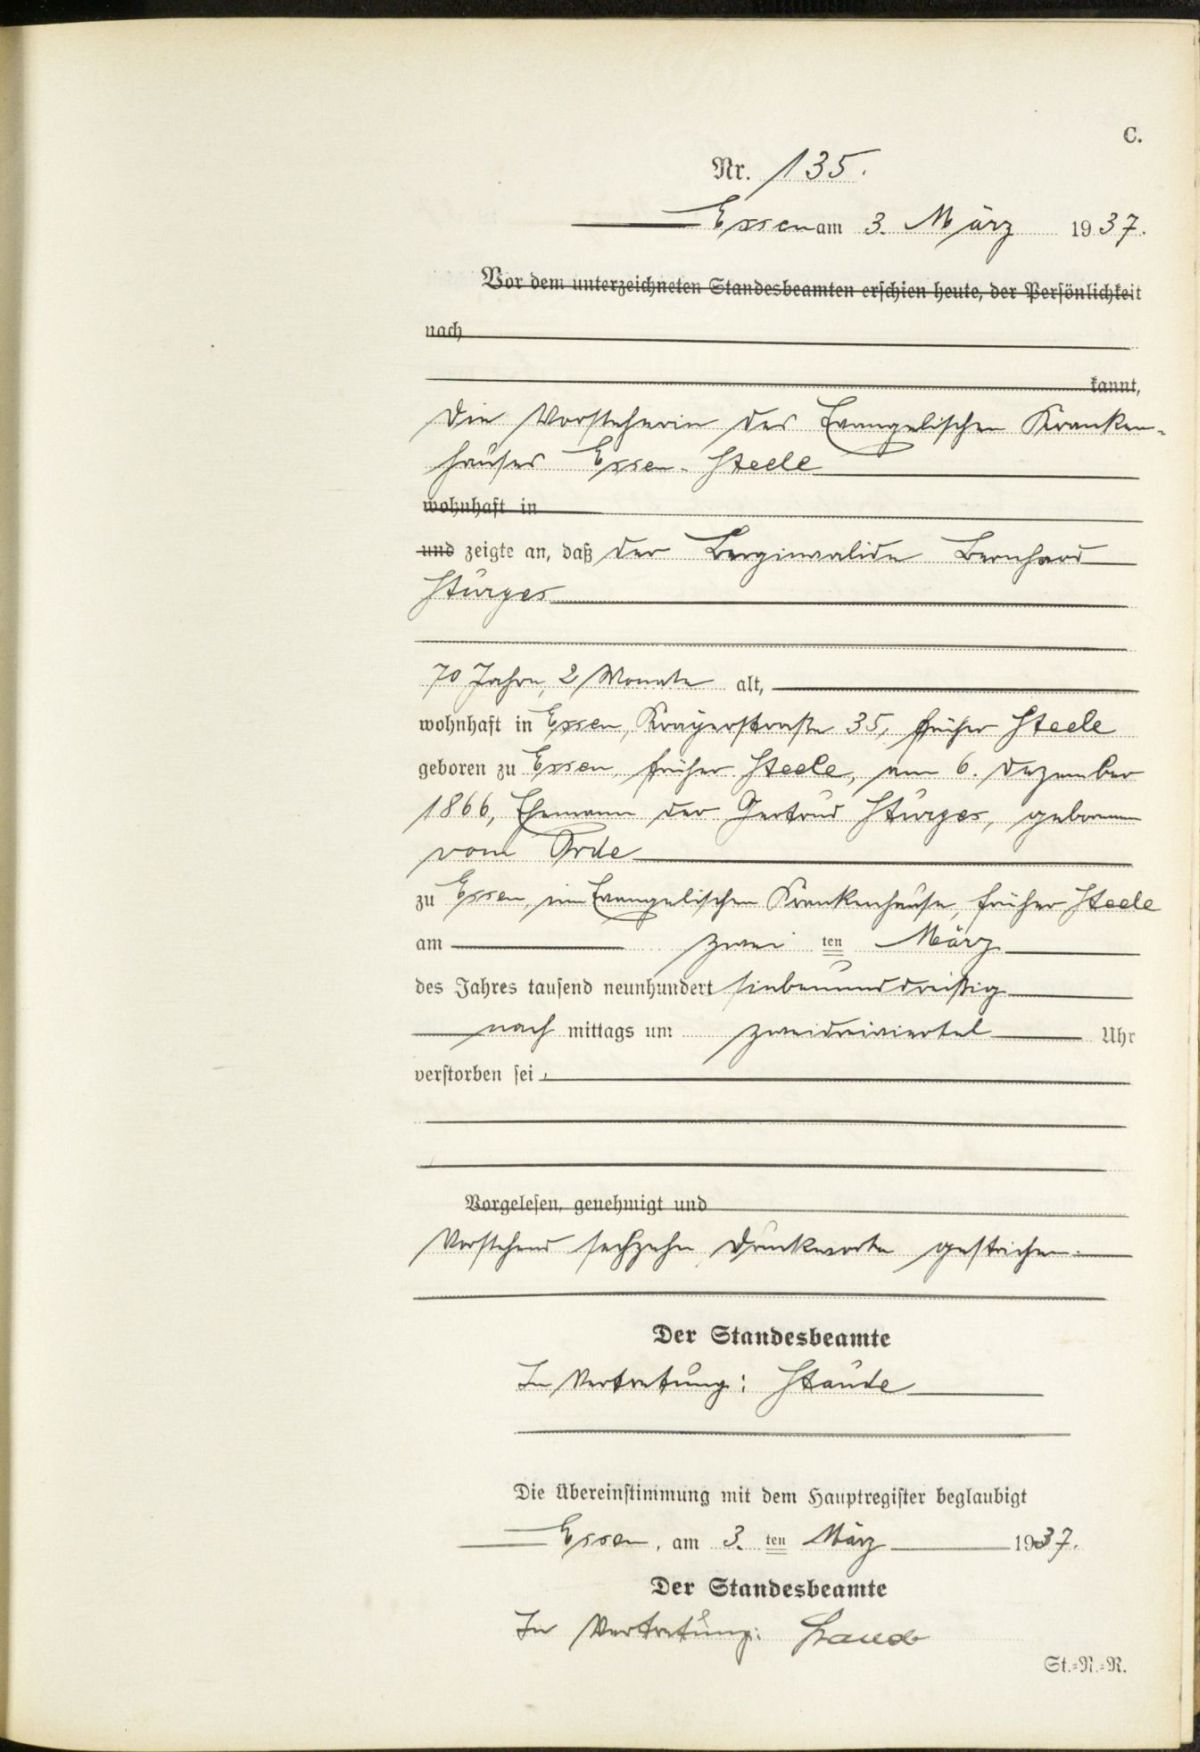 C.
Nr. 135.
Essen am 3. März 1937.
Vor dem unterzeichneten Standesbeamten erschien heute, der Persönlichkeit
nach
kannt,
Die Vorsteherin des Evangelischen Kranken-
hauses Essen-Steele
wohnhaft in
und zeigte an, daß der Berginvalide Bernhard
Stürges
70 Jahre, 2 Monate alt,
wohnhaft in Essen, Krayerstraße 35, früher Steele
geboren zu Essen, früher Steele, am 6. Dezember
1866, Ehemann der Gertrud Stürges, geborenen
vom Orde
zu Essen, im Evangelischen Krankenhause, früher Steele
am zwei ten März
des Jahres tausend neunhundert siebenunddreißig
nach mittags um zweidreiviertel Uhr
verstorben sei.
Vorgelesen, genehmigt und
Vorstehend sechzehn Druckworte gestrichen.
Der Standesbeamte
In Vertretung: Staude
Die Übereinstimmung mit dem Hauptregister beglaubigt
Essen, am 3. ten März 1937.
Der Standesbeamte
In Vertretung:
St.=N.=R.